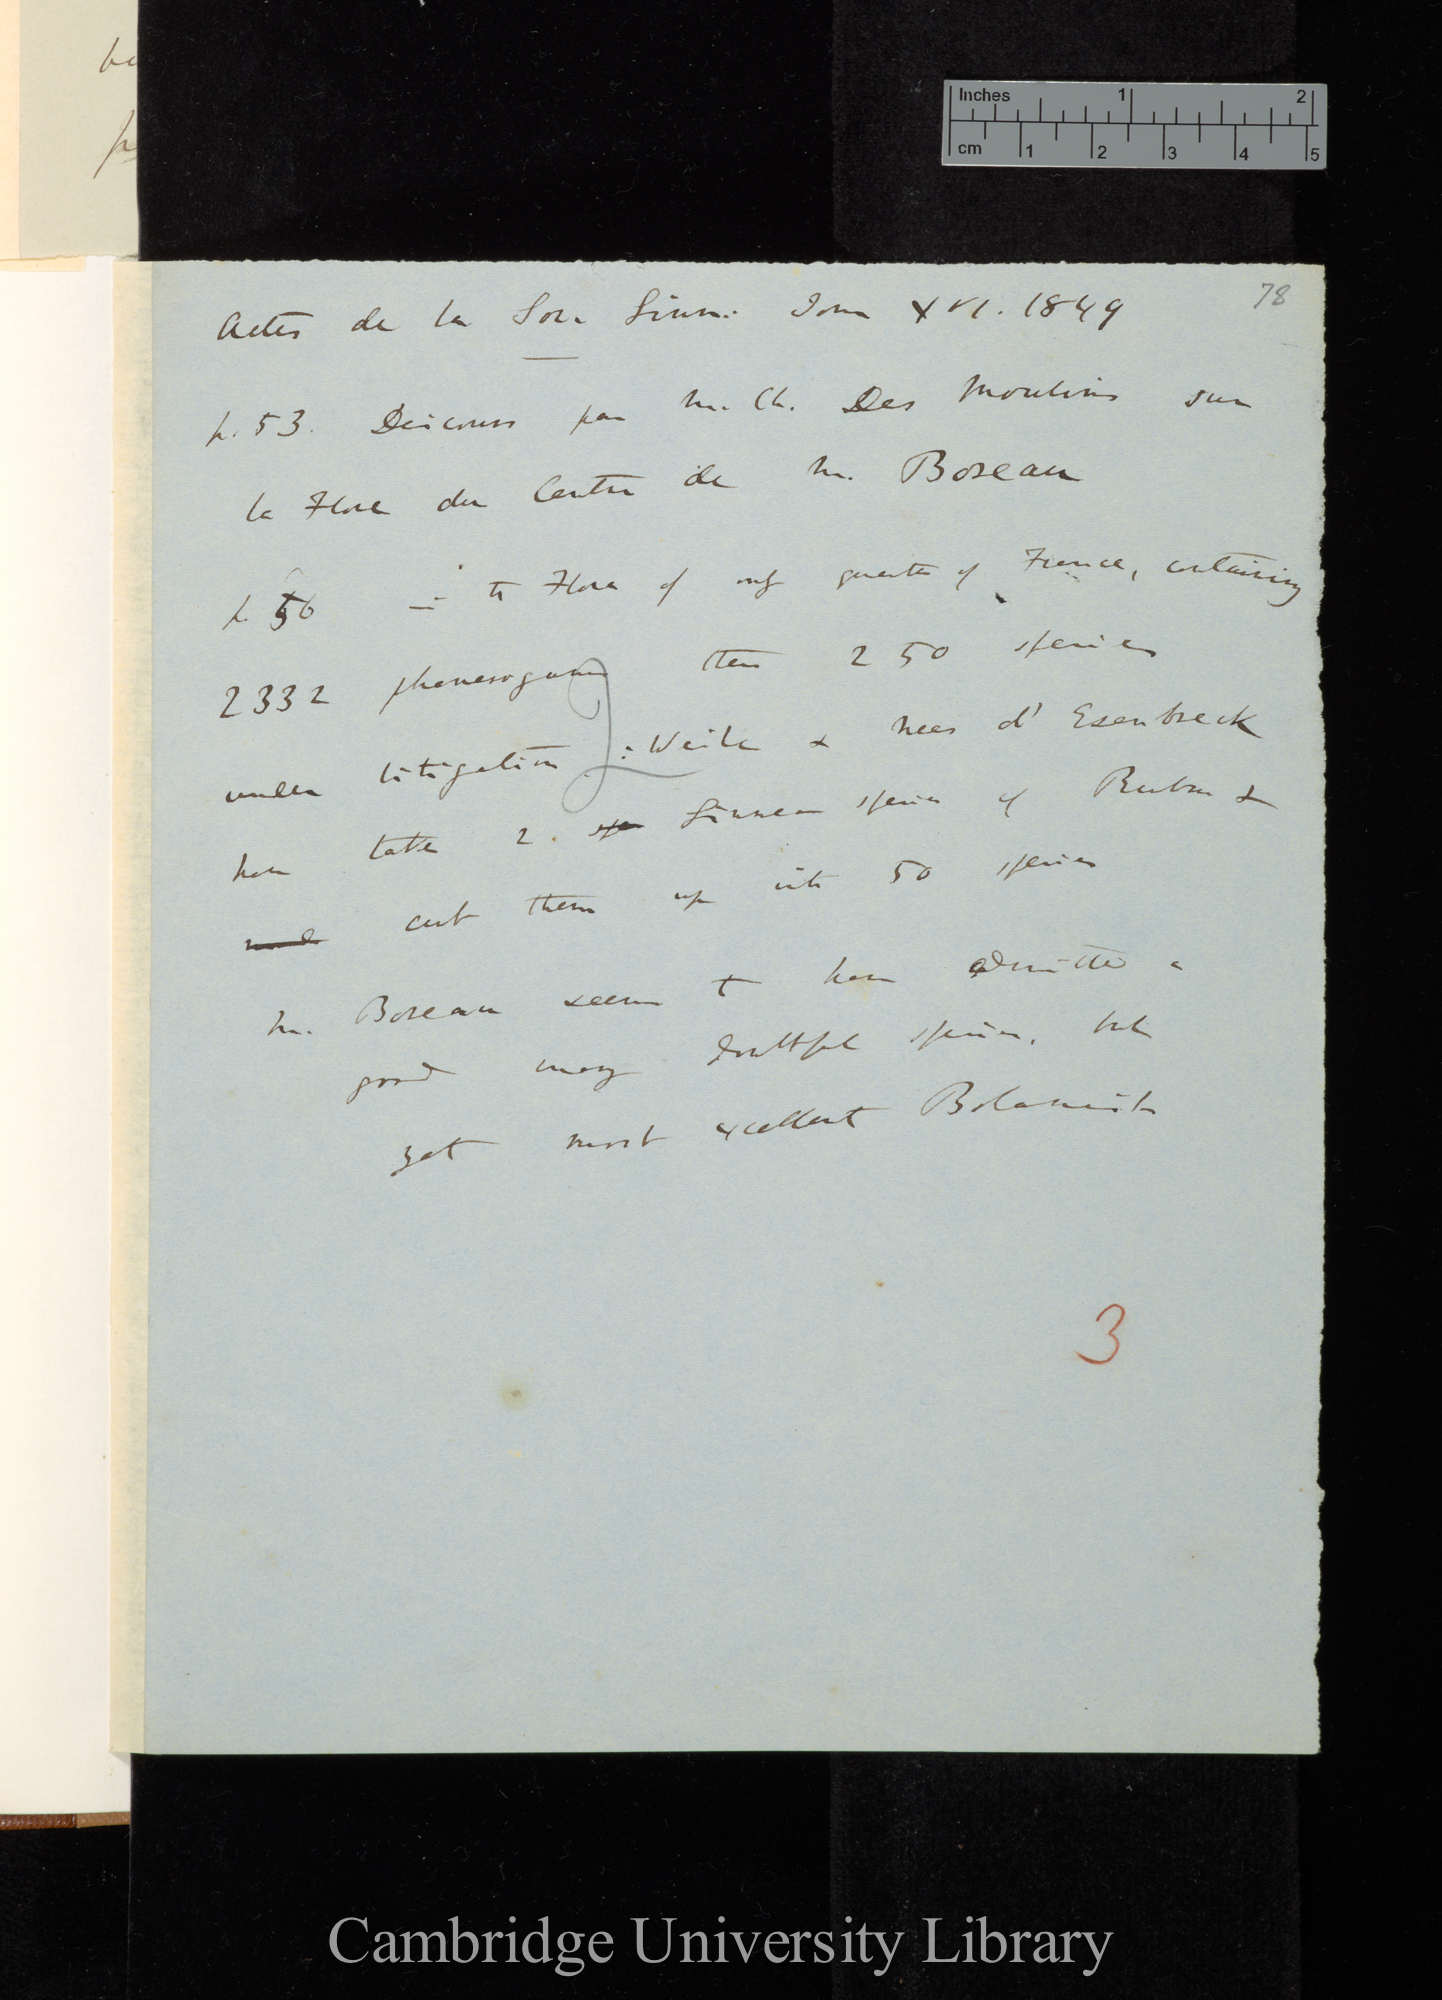 be
Inches 1 2
cm 1 2 3 4 5
78
Actes de la Soc. Linn. Tom XVI. 1849
p. 53. Discours par M. Ch. Des Moulins sur
la Flore du Centre de M. Boreau
p. 56 — in the Flora of only quarter of France, containing
2332 phanerogams there 250 species
under litigation : Weihe & Nees d' Esenbeck
have take 2 spe Linnean species of Rubus &
cut them up into 50 species
M. Boreau seems to have admitted a
good many doubtful species, but
yet most excellent Botanist
3
Cambridge University Library